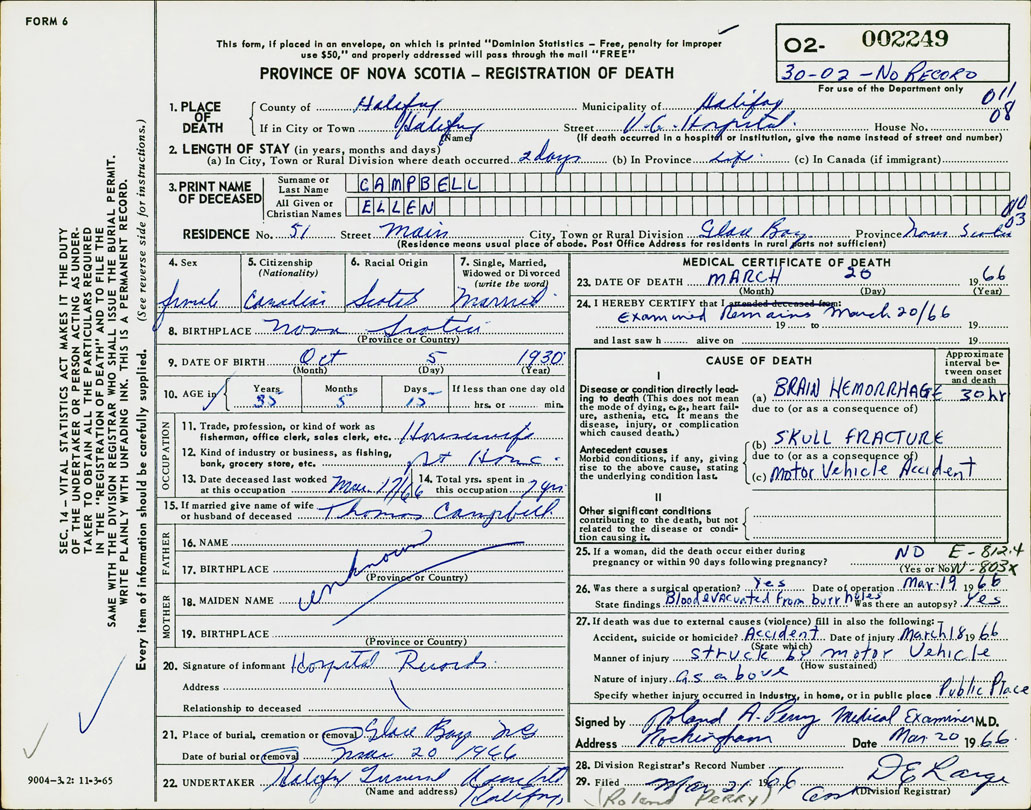 FORM 6
This form, if placed in an envelope, on which is printed "Dominion Statistics – Free, penalty for improper
use $50," and properly addressed will pass through the mail "FREE"
PROVINCE OF NOVA SCOTIA – REGISTRATION OF DEATH
O2- 002249
30-02 – No RECORD
For use of the Department only
011
08
1. PLACE OF DEATH
County of Halifax Municipality of Halifax
If in City or Town Halifax Street V.G. Hospital House No.
(Name) (If death occurred in a hospital or institution, give the name instead of street and number)
2. LENGTH OF STAY (in years, months and days)
(a) In City, Town or Rural Division where death occurred 2 days (b) In Province Life (c) In Canada (if immigrant)
3. PRINT NAME OF DECEASED
Surname or Last Name CAMPBELL
All Given or Christian Names ELLEN
NO
03
RESIDENCE No. 51 Street Main City, Town or Rural Division Glace Bay Province Nova Scotia
(Residence means usual place of abode. Post Office Address for residents in rural parts not sufficient)
4. Sex
female
5. Citizenship (Nationality)
Canadian
6. Racial Origin
Scotch
7. Single, Married, Widowed or Divorced (write the word)
Married
8. BIRTHPLACE Nova Scotia
(Province or Country)
9. DATE OF BIRTH Oct 5 1930
(Month) (Day) (Year)
10. AGE in Years 35 Months 5 Days 15 If less than one day old
hrs. or min.
OCCUPATION
11. Trade, profession, or kind of work as
fisherman, office clerk, sales clerk, etc. Housewife
12. Kind of industry or business, as fishing,
bank, grocery store, etc. At Home
13. Date deceased last worked
at this occupation Mar. 17/66
14. Total yrs. spent in
this occupation 7 yrs
15. If married give name of wife
or husband of deceased Thomas Campbell
FATHER
16. NAME
17. BIRTHPLACE
(Province or Country)
unknown
MOTHER
18. MAIDEN NAME
19. BIRTHPLACE
(Province or Country)
20. Signature of informant Hospital Records
Address
Relationship to deceased
21. Place of burial, cremation or removal Glace Bay NS
Date of burial or removal Mar 20 1966
22. UNDERTAKER Halifax Funeral
(Name and address) Halifax
MEDICAL CERTIFICATE OF DEATH
23. DATE OF DEATH MARCH 20 1966
(Month) (Day) (Year)
24. I HEREBY CERTIFY that I attended deceased from:
Examined Remains March 20/66
19 to 19
and last saw h alive on 19
CAUSE OF DEATH
Approximate interval between onset and death
I
Disease or condition directly lead-
ing to death (This does not mean
the mode of dying, e.g., heart fail-
ure, asthenia, etc. It means the
disease, injury, or complication
which caused death.)
(a) BRAIN HEMORRHAGE 30 hr
due to (or as a consequence of)
Antecedent causes
Morbid conditions, if any, giving
rise to the above cause, stating
the underlying condition last.
(b) SKULL FRACTURE
due to (or as a consequence of)
(c) Motor Vehicle Accident
II
Other significant conditions
contributing to the death, but not
related to the disease or condi-
tion causing it.
25. If a woman, did the death occur either during
pregnancy or within 90 days following pregnancy? NO
(Yes or No)
E-812.4
N-803x
26. Was there a surgical operation? Yes Date of operation Mar. 19 1966
State findings Blood evacuated from burr holes Was there an autopsy? Yes
27. If death was due to external causes (violence) fill in also the following:
Accident, suicide or homicide? Accident Date of injury March 18 1966
(State which)
Manner of injury struck by motor Vehicle
(How sustained)
Nature of injury as above
Specify whether injury occurred in industry, in home, or in public place Public Place
Signed by Roland A. Perry Medical Examiner M.D.
Address Rockingham Date Mar. 20 1966
28. Division Registrar's Record Number
29. Filed Mar 21 1966 D E Large
(Division Registrar)
(Roland PERRY)
SEC. 14 – VITAL STATISTICS ACT MAKES IT THE DUTY
OF THE UNDERTAKER OR PERSON ACTING AS UNDER-
TAKER TO OBTAIN ALL THE PARTICULARS REQUIRED
IN THE "REGISTRATION OF DEATH" AND TO FILE THE
SAME WITH THE DIVISION REGISTRAR WHO SHALL ISSUE THE BURIAL PERMIT.
WRITE PLAINLY WITH UNFADING INK. THIS IS A PERMANENT RECORD.
Every item of information should be carefully supplied. (See reverse side for instructions.)
9004-3.2: 11-3-65